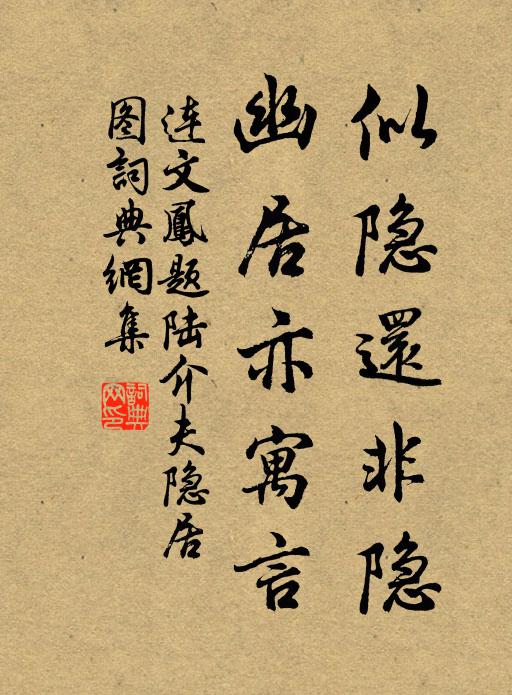 似隐還非隐
幽居亦寓言
连文鳳题陆介夫隐居
图詞典網集
詞典網印